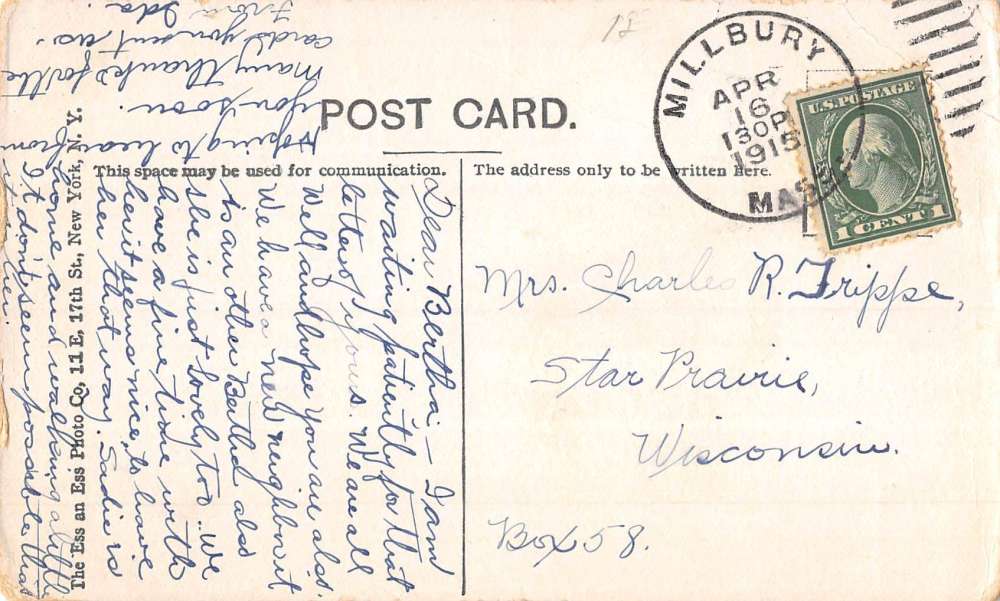 POST CARD.
This space may be used for communication.
The address only to be written here.
The Ess an Ess Photo Co., 11 E, 17th St., New York, N. Y.
MILLBURY
APR
16
130P
1915
MASS.
U.S. POSTAGE
1 CENT 1
Mrs. Charles R. Frippe,
Star Prairie,
Wisconsin.
Box 58.
Dear Bertha:— I am
waiting patiently for that
letter of yours. We are all
well and hope you are also.
We have a new neighbor it
is an other Bertha and
she is just lovely, too. We
have a fine time with
her it seems nice to have
her that way. Sadie is
home and walking a little
It don't seem possible that
it is her.
Hoping to hear from
you soon.
Many thanks for the
cards you sent us.
From Ida.